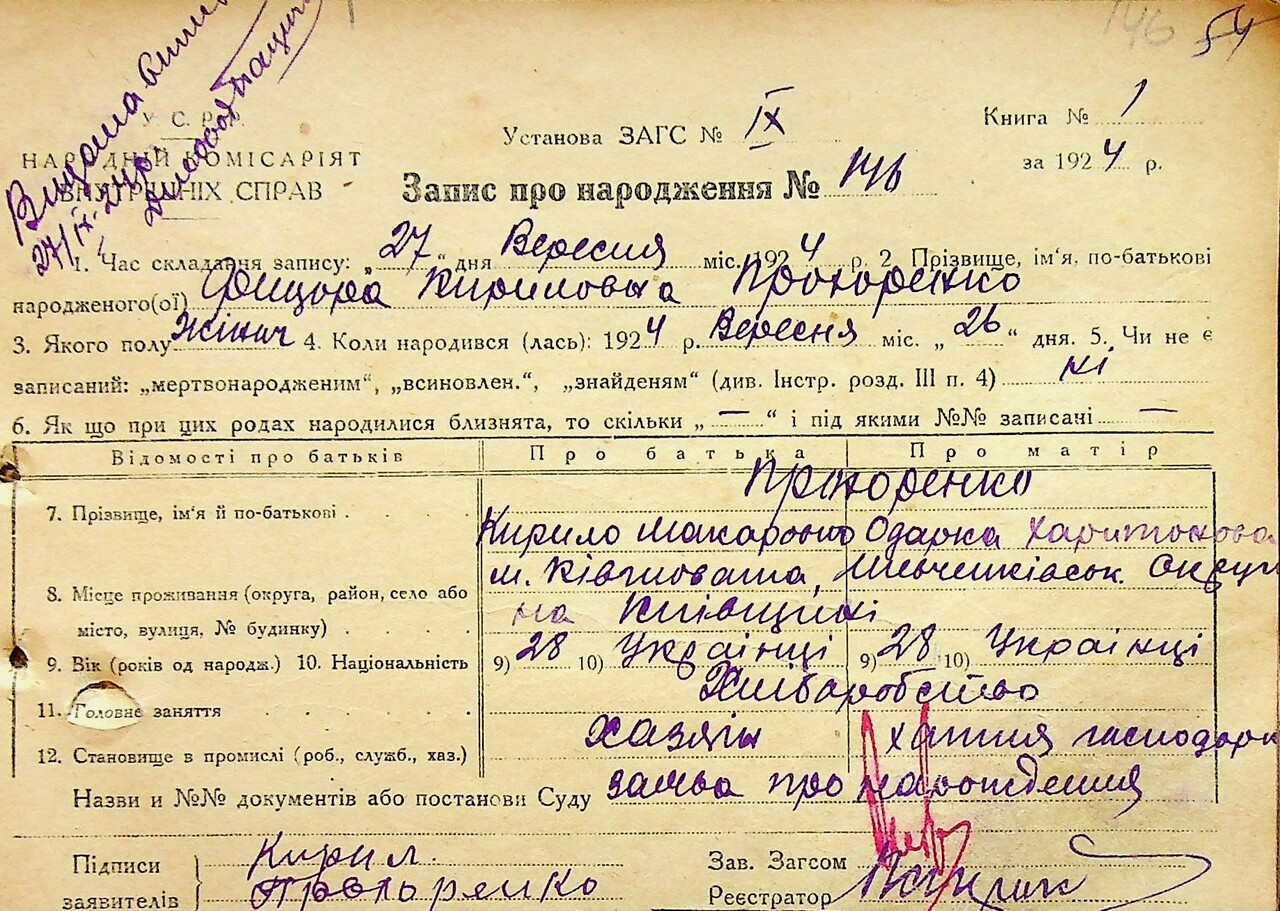 146 54
Видана
27/IX-24р.
У. С. Р. Р.
НАРОДНІЙ КОМІСАРІЯТ
ВНУТРІШНІХ СПРАВ
Установа ЗАГС № IX
Книга № 1
за 1924 р.
Запис про народження № 146
1. Час складання запису: „27“ дня Вересня міс. 1924 р. 2. Прізвище, ім'я, по-батькові
народженого(ої) Кириловна Прохоренко
3. Якого полу жіноч 4. Коли народився (лась): 1924 р. Вересня міс. „26“ дня. 5. Чи не є
записаний: „мертвонародженим“, „всиновлен.“, „знайденям“ (див. Інстр. розд. III п. 4) ні
6. Як що при цих родах народилися близнята, то скільки „—“ і під якими №№ записані —
Відомості про батьків Про батька Про матір
Прохоренко
7. Прізвище, ім'я й по-батькові Кирило Макарович Одарка Харитонова
8. Місце проживання (округа, район, село або м. Ківшовата,
місто, вулиця, № будинку) на Київщині
9. Вік (років од народж.) 10. Національність 9) 28 10) Українці 9) 28 10) Українці
11. Головне заняття Хліборобство
12. Становище в промислі (роб., служб., хаз.) Хазяїн хатня господарк
Назви и №№ документів або постанови Суду заява про народження
Підписи
заявителів
Кирил
Прохоренко
Зав. Загсом
Реєстратор